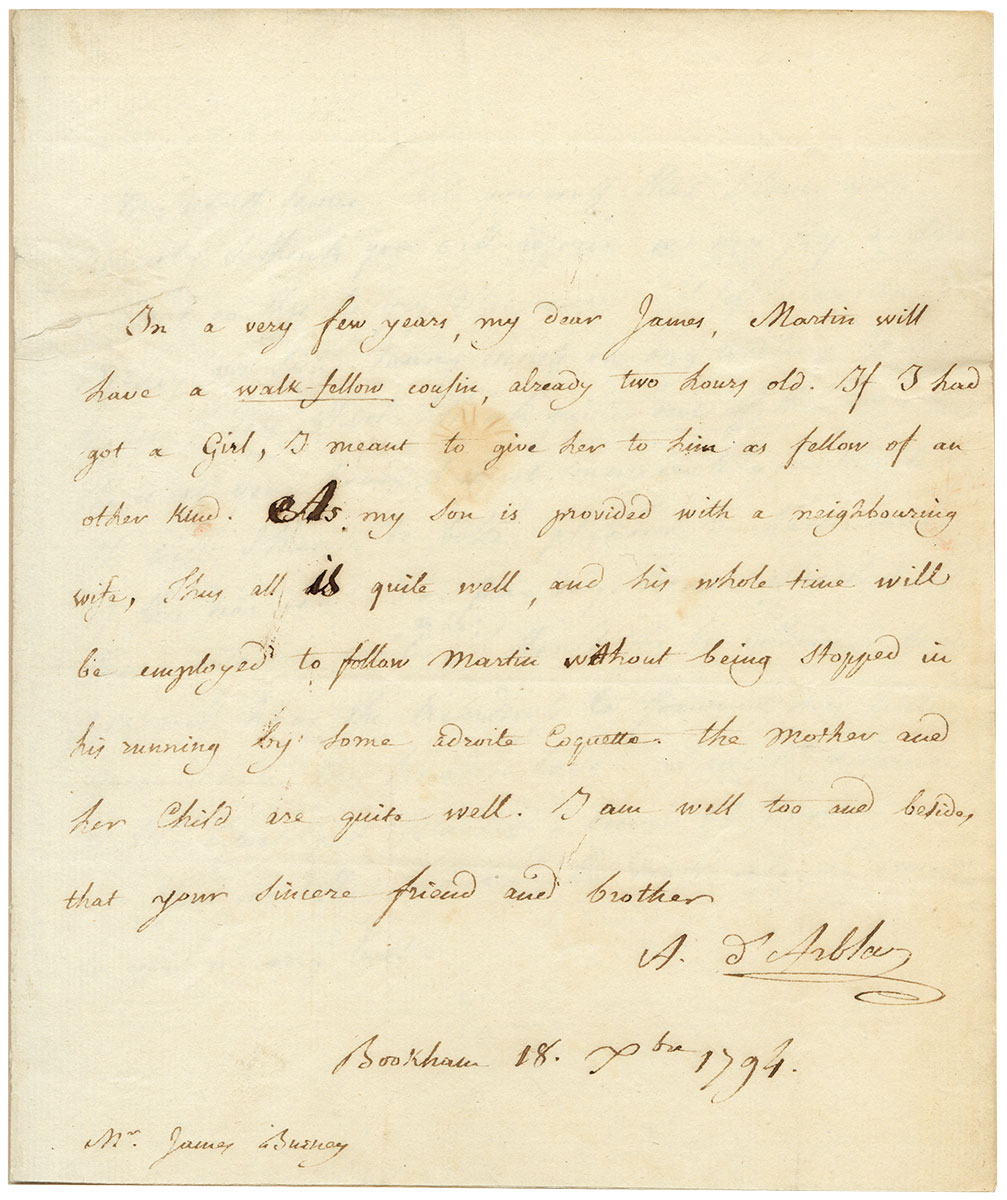 In a very few years, my dear James, Martin will
have a walk-fellow cousin, already two hours old. If I had
got a Girl, I meant to give her to him as fellow of an
other kind. As my son is provided with a neighbouring
wife, Thus all is quite well, and his whole time will
be employed to follow Martin without being stopped in
his running by some adroite Coquette. the Mother and
her Child are quite well. I am well too and besides,
that your sincere friend and brother
A. d'Arblay
Bookham 18. Xbre 1794.
Mr. James Burney